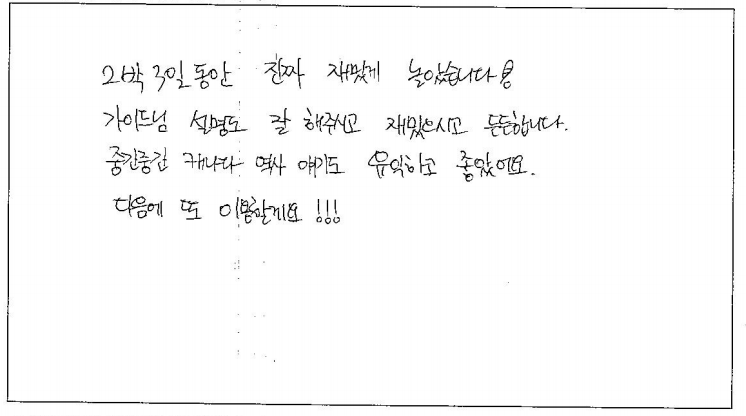 2박 3일 동안 진짜 재밌게 놀았습니다!
가이드님 설명도 잘 해주시고 재밌으시고 든든합니다.
중간중간 캐나다 역사 얘기도 유익하고 좋았어요.
다음에 또 이용할게요 !!!